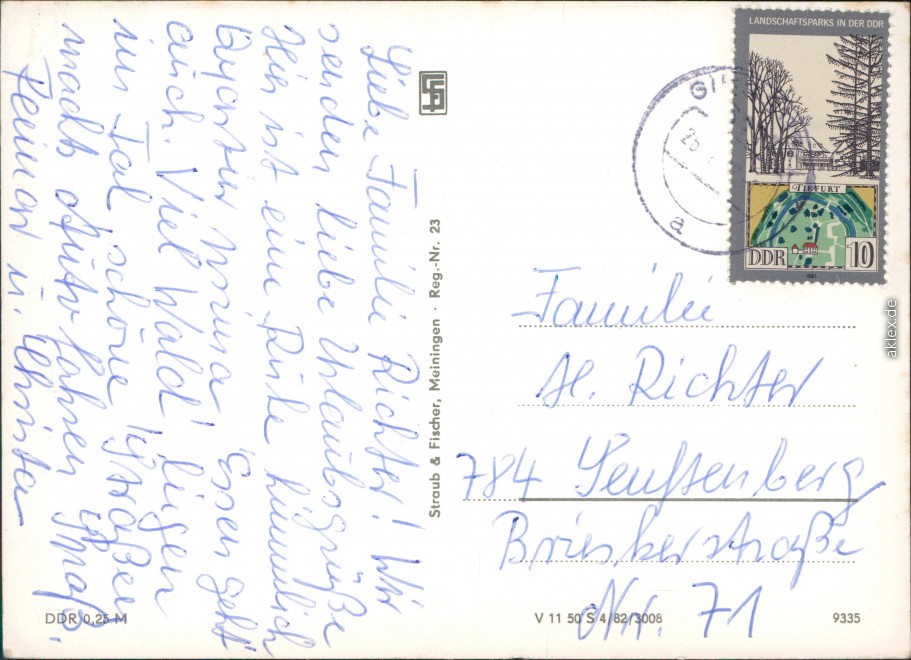 Liebe Familie Richter! Wir
senden liebe Urlaubsgrüße
Hier ist eine Ruhe himmlich
Essen geht
auch. Viel Wald liegen
im Tal schöne Straßen
macht Auto fahren Spaß.
Straub & Fischer, Meiningen · Reg.-Nr. 23
LANDSCHAFTSPARKS IN DER DDR
TIEFURT
DDR 10
1981
a
Familie
H. Richter
784 Senftenberg
Brieskerstraße
Nr. 71
DDR 0,25 M
V 11 50 S 4/82/3008
9335
aklex.de